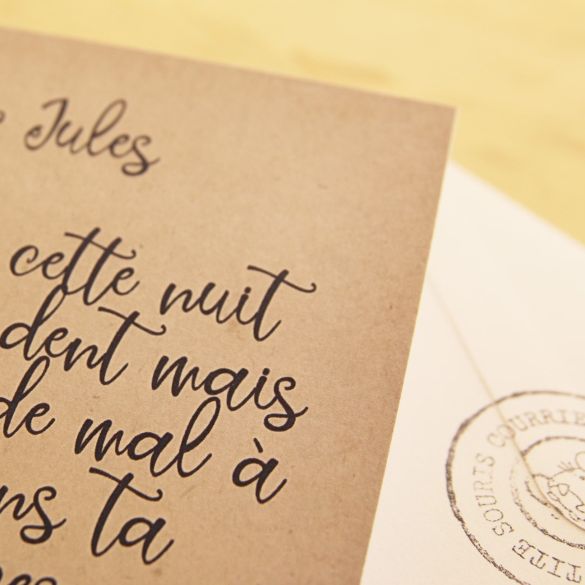 Jules
cette nuit
dent mais
de mal à
ns ta
TITE SOURIS COURRIE